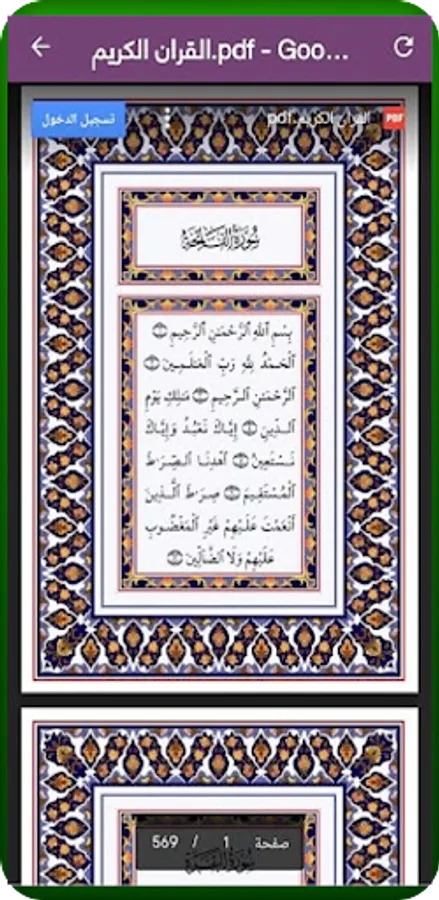 القران الكريم.pdf - Goo...
تسجيل الدخول
القران الكريم.pdf
PDF
سُورَةُ الفَاتِحَةِ
بِسْمِ ٱللَّهِ ٱلرَّحْمَٰنِ ٱلرَّحِيمِ ۝١
ٱلْحَمْدُ لِلَّهِ رَبِّ ٱلْعَٰلَمِينَ ۝٢
ٱلرَّحْمَٰنِ ٱلرَّحِيمِ ۝٣ مَٰلِكِ يَوْمِ
ٱلدِّينِ ۝٤ إِيَّاكَ نَعْبُدُ وَإِيَّاكَ
نَسْتَعِينُ ۝٥ ٱهْدِنَا ٱلصِّرَٰطَ
ٱلْمُسْتَقِيمَ ۝٦ صِرَٰطَ ٱلَّذِينَ
أَنْعَمْتَ عَلَيْهِمْ غَيْرِ ٱلْمَغْضُوبِ
عَلَيْهِمْ وَلَا ٱلضَّآلِّينَ ۝٧
صفحة 1 / 569
سُورَةُ البَقَرَةِ